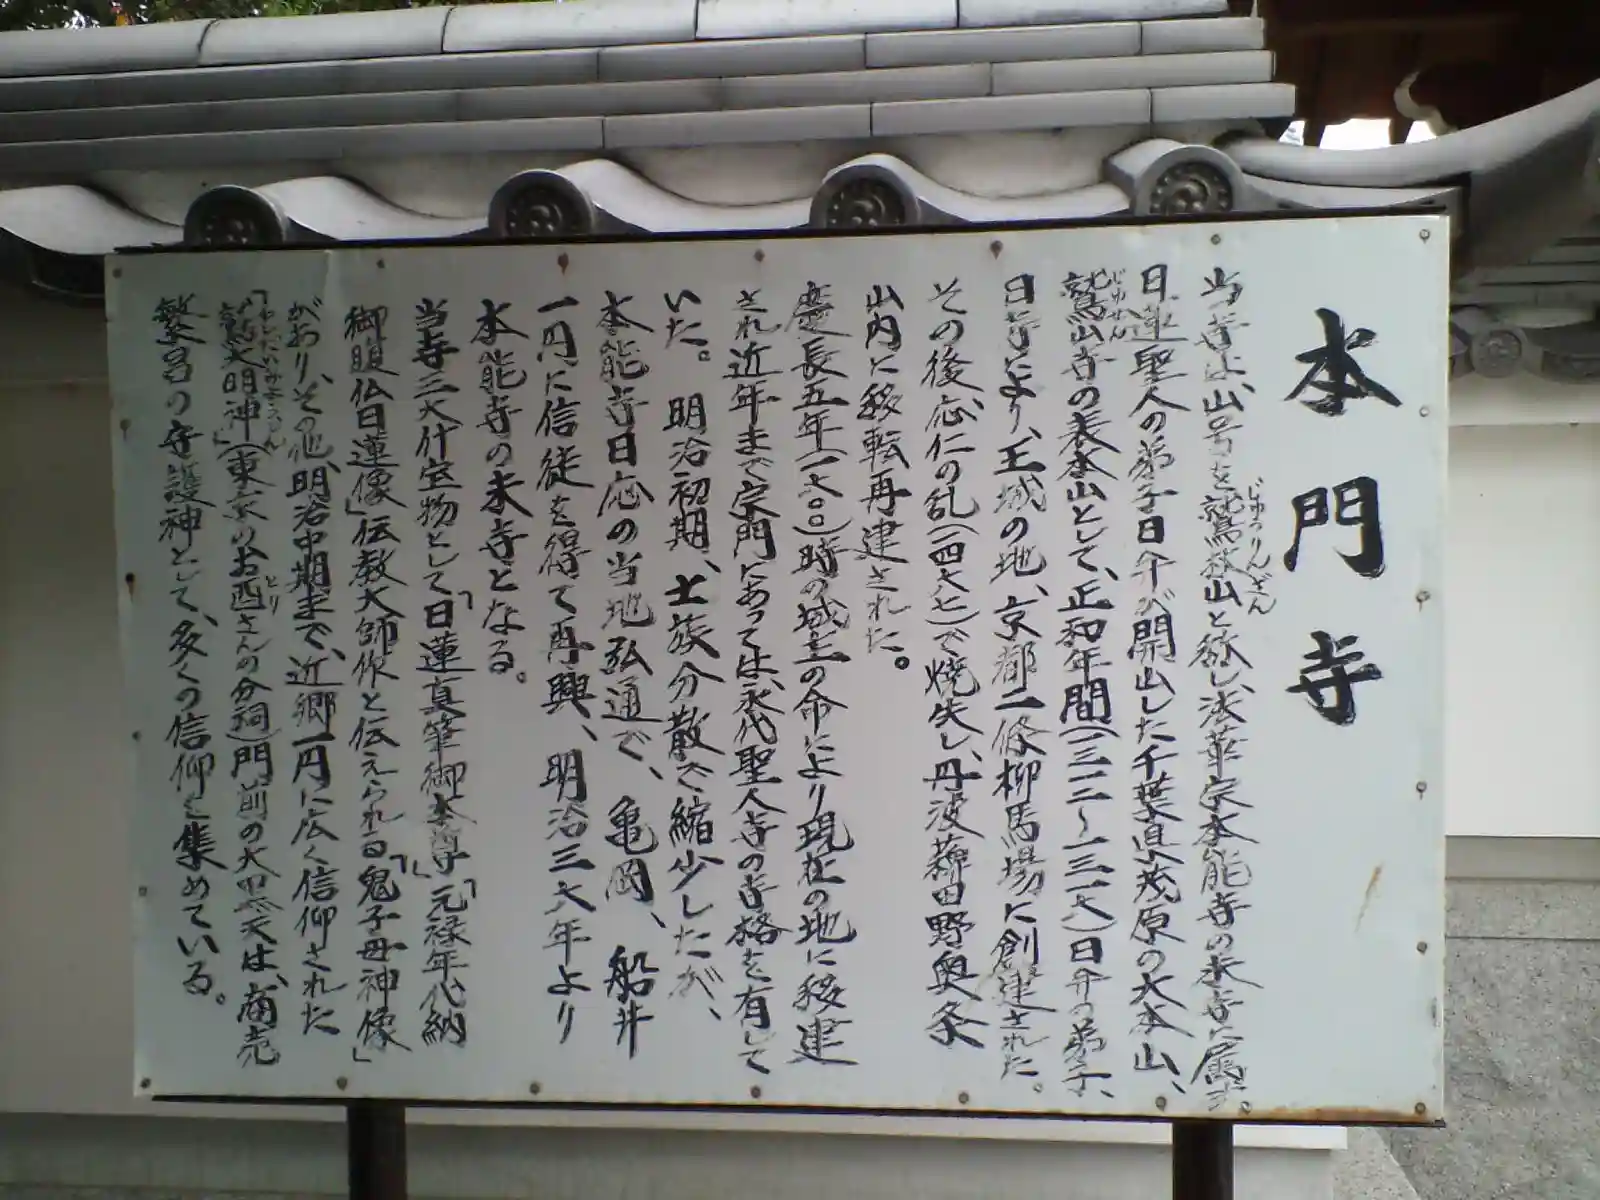 本門寺
当寺は、山号を鷲林山と称し、法華宗本能寺の末寺に属す。
じゅうりんざん
日蓮聖人の弟子日弁が開山した千葉県茂原の大本山、
鷲山寺の表本山として、正和年間(一三一二〜一三一六)日弁の弟子、
じゅせん
日寺により、王城の地、京都二條柳馬場に創建された。
その後、応仁の乱(一四六七)で焼失し、丹波薭田野奥条
山内に移転再建された。
慶長五年(一六〇〇)時の城主の命により現在の地に移建
され近年まで宗門にあっては、永代聖人寺の寺格を有して
いた。明治初期、士族分散で縮少したが、
本能寺日応の当地弘通で、亀岡、船井
一円に信徒を得て再興、明治三六年より
本能寺の末寺となる。
当寺三大什宝物として「日蓮真筆御本尊」「元禄年代納
御腹仏日蓮像」伝教大師作と伝えられる「鬼子母神像」
があり、その他、明治中期まで、近郷一円に広く信仰された
「鷲大明神」(東京のお酉さんの分祠)門前の大黒天は、商売
わしだいみょうじん
とり
繁昌の守護神として、多くの信仰を集めている。